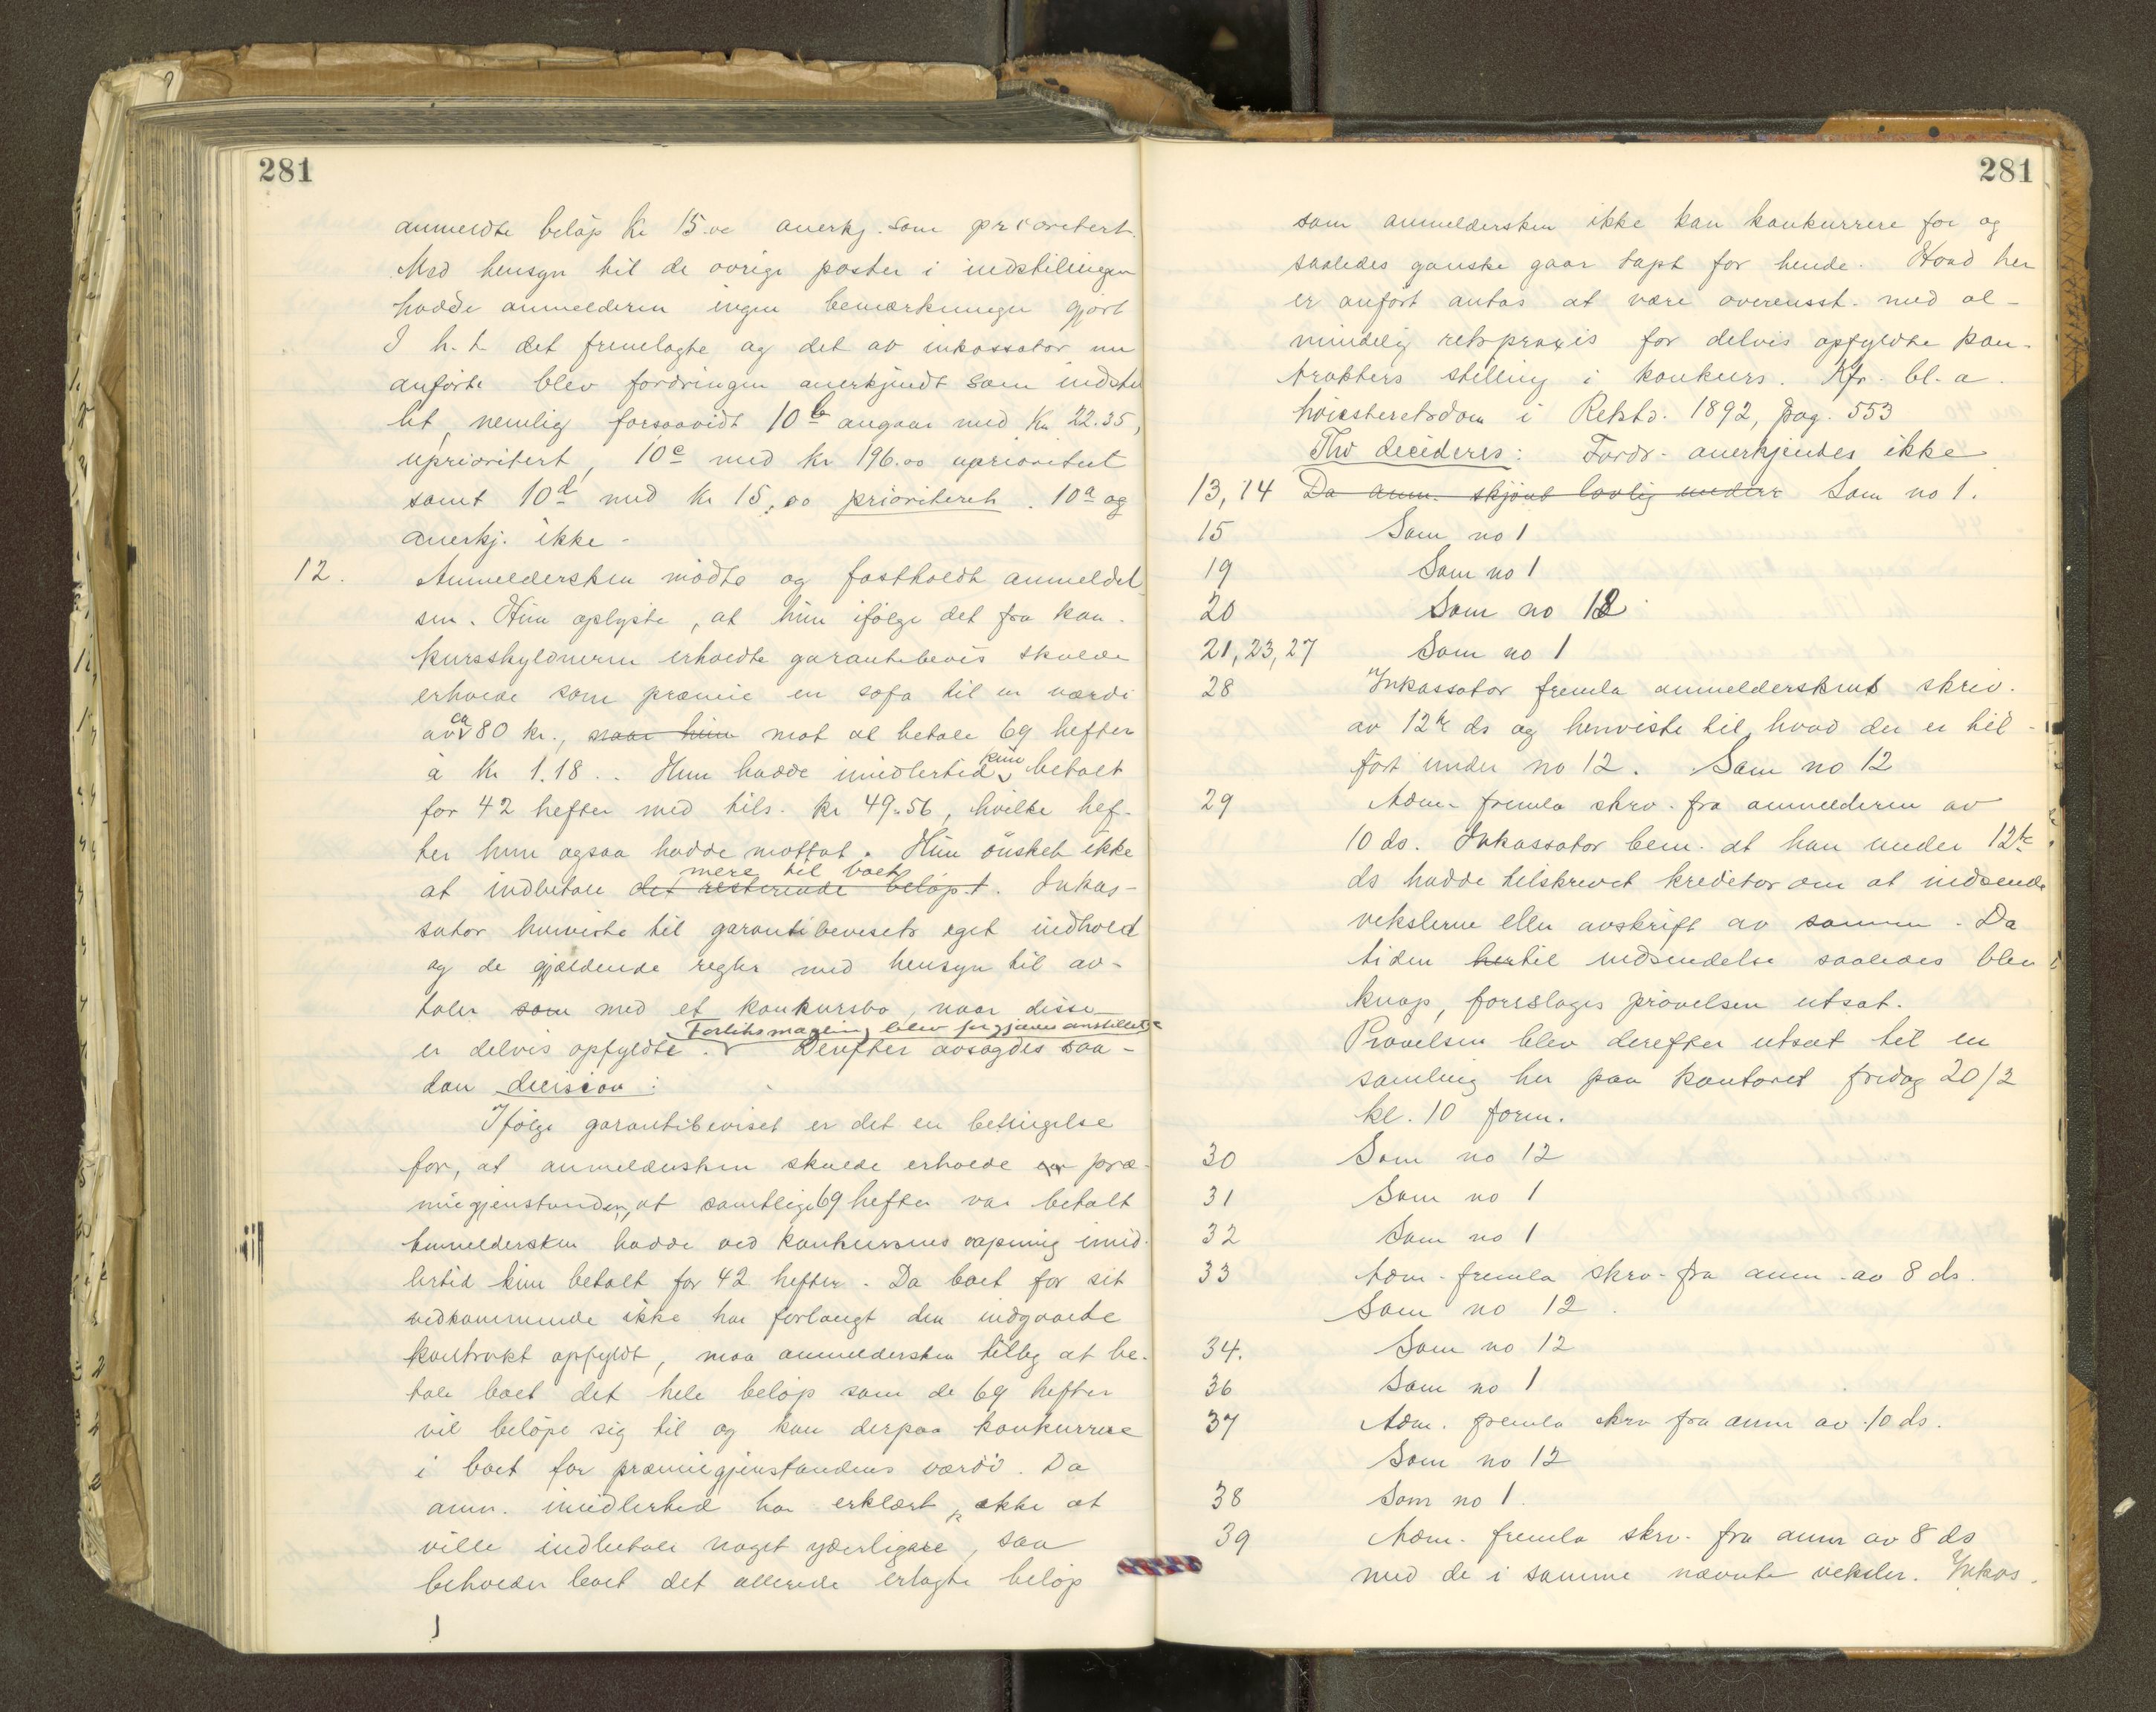 281
anmeldte beløp kr 15.00 anerkj. som prioritert.
Med hensyn til de øvrige poster i indstillingen
hadde anmelderen ingen bemærkninger gjort
I h. t. det fremlagte og det av inkassator nu
anførte blev fordringen anerkjendt som indstil
let, nemlig forsaavidt 10b angaar med kr. 22.35,
uprioritert, 10c med kr 196.00 uprioritert
samt 10d med kr 15,00 prioritert. 10a og
anerkj. ikke.
12. Anmeldersken mødte og fastholdt anmeldel
sen. Hun oplyste, at hun ifølge det fra kon-
kursskyldneren erholdte garantibevis skulde
erholde som præmie en sofa til en værdi
av ca 80 kr., naar hun mot at betale 69 hefter
à kr 1.18. Hun hadde imidlertid kun betalt
for 42 hefter med tils. kr 49.56, hvilke hef-
ter hun ogsaa hadde mottat. Hun ønsket ikke
mere til boet
at indbetale det resterende beløp. Inkas-
sator henviste til garantibevisets eget indhold
og de gjældende regler med hensyn til av-
taler som med et konkursbo, naar disse
Forliksmægling blev forgjæves anstillet
er delvis opfyldte. Derefter avsagdes saa-
dan decision:
Ifølge garantibeviset er det en betingelse
for, at anmeldersken skulde erholde en præ-
miegjenstanden, at samtlige 69 hefter var betalt
Anmeldersken hadde ved konkursens aapning imid-
lertid kun betalt for 42 hefter. Da boet for sit
vedkommende ikke har forlangt den indgaaede
kontrakt opfyldt, maa anmeldersken tilby at be-
tale boet det hele beløp som de 69 hefter
vil beløpe sig til og kan derpaa konkurrere
i boet for præmiegjenstandens værdi. Da
anm. imidlertid har erklært, ikke at
ville indbetale noget yderligere, saa
beholder boet det allerede erlagte beløp
281
som anmeldersken ikke kan konkurrere for og
saaledes ganske gaar tapt for hende. Hvad her
er anført antas at være overensst. med al-
mindelig retspraxis for delvis opfyldte kon-
trakters stilling i konkurs. Kfr. bl. a.
høiesteretsdom i Retstd. 1892, pag. 553
Thi decideres: Fordr. anerkjendes ikke
13, 14 Da anm. skjønt lovlig Som no 1.
15 Som no 1
19 Som no 1
20 Som no 12
21, 23, 27 Som no 1
28 Inkassator fremla anmelderskens skriv.
av 12te ds og henviste til hvad der er til-
ført under no 12. Som no 12
29 Adm. fremla skrv. fra anmelderen av
10 ds. Inkassator bem. at han under 12te
ds hadde tilskrevet kreditor om at indsende
vekslerne eller avskrift av samme. Da
tiden hertil indsendelse saaledes blev
knap, foreslages prøvelsen utsat.
Prøvelsen blev derefter utsat til en
samling her paa kontoret fredag 20/2
kl. 10 form.
30 Som no 12
31 Som no 1
32 Som no 1
33 Adm. fremla skrv. fra anm. av 8 ds.
Som no 12.
34. Som no 12
36 Som no 1
37 Adm. fremla skrv fra anm av 10 ds.
Som no 12
38 Som no 1.
39 Adm. fremla skrv. fra anm av 8 ds
med de i samme nævnte veksler. Inkas-